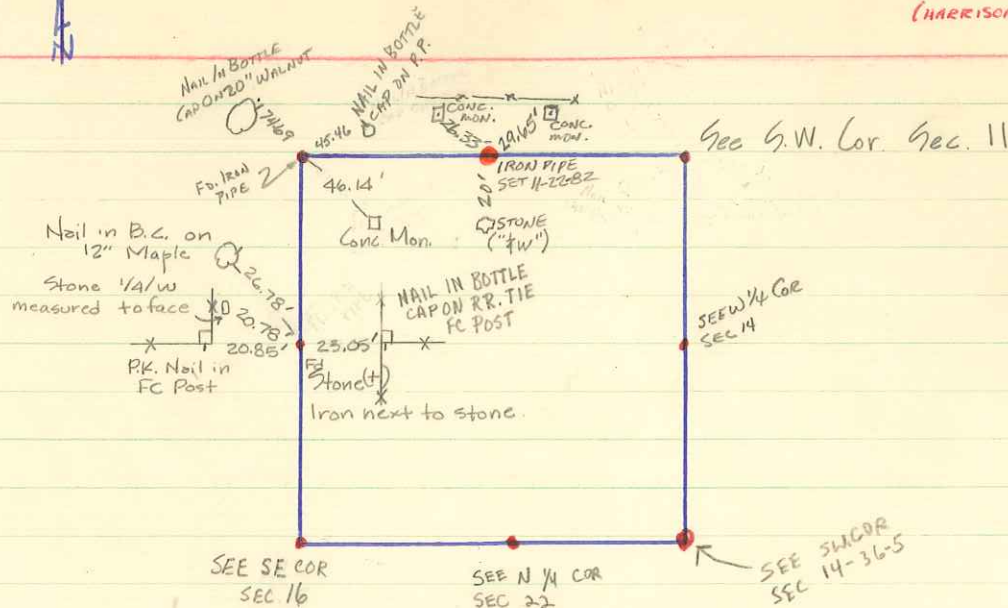 (HARRISON
N
NAIL IN BOTTLE
CAP ON 20" WALNUT
74.69
NAIL IN BOTTLE
CAP ON P.P.
45.46
CONC.
MON.
26.33'
29.65'
CONC.
MON.
See S.W. Cor. Sec. 11
FD. IRON
PIPE
46.14'
Conc. Mon.
IRON PIPE
SET 11-22-82
20'
STONE
Nail in B.C. on
12" Maple
26.78'
Stone 1/4/W
measured to face
20.78'
20.85'
P.K. Nail in
FC Post
NAIL IN BOTTLE
CAP ON RR. TIE
FC POST
23.05'
Fd
Stone (+)
Iron next to stone.
SEE W 1/4 COR
SEC 14
SEE SE COR
SEC 16
SEE N 1/4 COR
SEC 22
SEE SW. COR
SEC 14-36-5